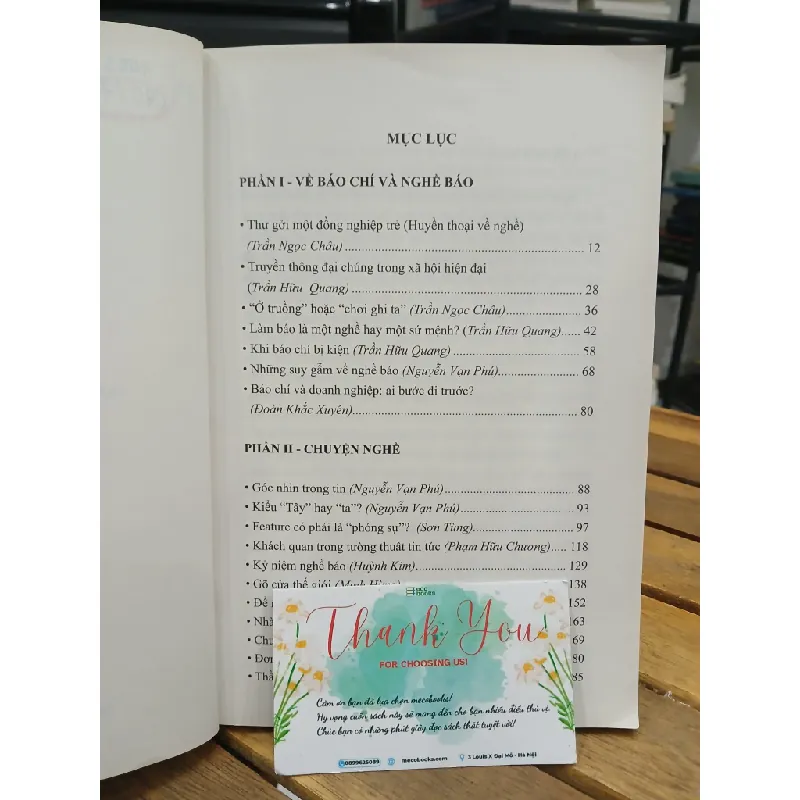 MỤC LỤC
PHẦN I - VỀ BÁO CHÍ VÀ NGHỀ BÁO
• Thư gởi một đồng nghiệp trẻ (Huyền thoại về nghề)
(Trần Ngọc Châu) 12
• Truyền thông đại chúng trong xã hội hiện đại
(Trần Hữu Quang) 28
• “Ở truồng” hoặc “chơi ghi ta” (Trần Ngọc Châu) 36
• Làm báo là một nghề hay một sứ mệnh? (Trần Hữu Quang) 42
• Khi báo chí bị kiện (Trần Hữu Quang) 58
• Những suy gẫm về nghề báo (Nguyễn Vạn Phú) 68
• Báo chí và doanh nghiệp: ai bước đi trước?
(Đoàn Khắc Xuyên) 80
PHẦN II - CHUYỆN NGHỀ
• Góc nhìn trong tin (Nguyễn Vạn Phú) 88
• Kiểu “Tây” hay “ta”? (Nguyễn Vạn Phú) 93
• Feature có phải là “phóng sự”? (Sơn Tùng) 97
• Khách quan trong tường thuật tin tức (Phạm Hữu Chương) 118
• Kỷ niệm nghề báo (Huỳnh Kim) 129
• Gõ cửa thế giới 138
• Để 152
• 63
• 69
• Đơn 80
• 85
Thank You
FOR CHOOSING US!
Cảm ơn bạn đã lựa chọn mecobooks!
Hy vọng cuốn sách này sẽ mang đến cho bạn nhiều điều thú vị
Chúc bạn có những phút giây đọc sách thật tuyệt vời!
mecobooks.com